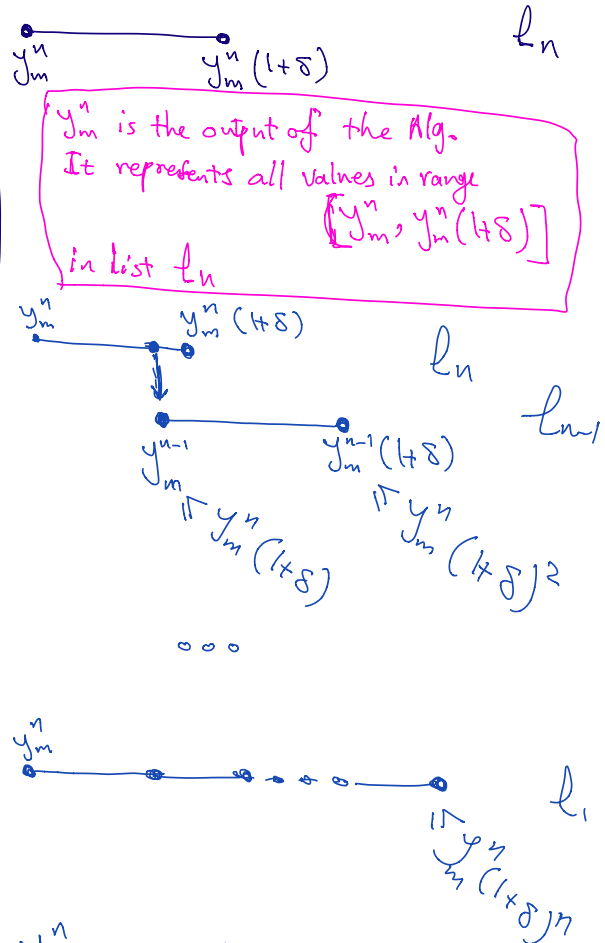 yₘⁿ yₘⁿ(1+δ) lₙ
yₘⁿ is the output of the Alg.
It represents all values in range
[yₘⁿ, yₘⁿ(1+δ)]
in list lₙ
yₘⁿ yₘⁿ(1+δ) lₙ
lₙ₋₁
yₘⁿ⁻¹ yₘⁿ⁻¹(1+δ)
≤ yₘⁿ(1+δ) ≤ yₘⁿ(1+δ)²
∘∘∘
yₘⁿ l₁
≤ yₘⁿ(1+δ)ⁿ